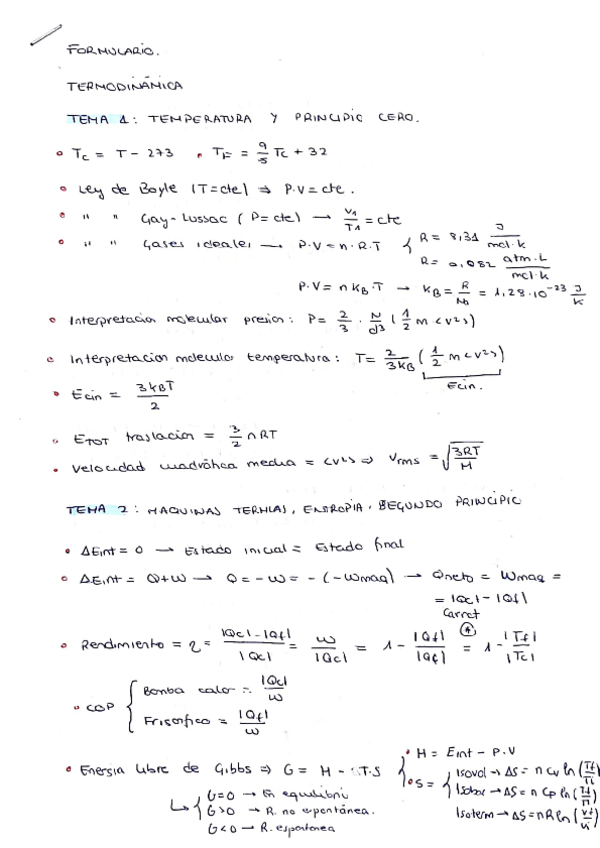 FORMULARIO.
TERMODINÁMICA
TEMA 1: TEMPERATURA Y PRINCIPIO CERO.
• Tc = T - 273 • TF = 9/5 Tc + 32
• Ley de Boyle (T=cte) ⇒ P.V = cte.
• " " Gay-Lussac (P=cte) → V1/T1 = cte
• " " Gases ideales → P.V = n.R.T { R = 8,31 J/mol.k
R = 0,082 atm.L/mol.k
P.V = n KB.T → KB = R/NA = 1,28.10^-23 J/K
• Interpretacion molecular presion: P = 2/3 . N/d3 (1/2 m <v2>)
• Interpretacion molecular temperatura: T = 2/3KB (1/2 m <v2>)
Ecin.
• Ecin = 3KBT/2
• ETOT traslacion = 3/2 nRT
• Velocidad cuadrática media = <v2> ⇒ Vrms = √3RT/M
TEMA 2: MAQUINAS TERMICAS, ENTROPIA, SEGUNDO PRINCIPIO
• ΔEint = 0 → Estado inicial = Estado final
• ΔEint = Q+W → Q = -W = -(-Wmaq) → Qneto = Wmaq =
= |Qc| - |Qf|
Carnot
• Rendimiento = η = |Qc|-|Qf|/|Qc| = W/|Qc| = 1 - |Qf|/|Qc| = 1 - |Tf|/|Tc|
• COP { Bomba calor = |Qc|/W
Frigorifico = |Qf|/W
• Energia libre de Gibbs ⇒ G = H - T.S { • H = Eint - P.V
• S = { Isovol → ΔS = n Cv ln (Tf/Ti)
Isobar → ΔS = n Cp ln (Tf/Ti)
Isoterm → ΔS = nR ln (Vf/Vi)
↳ { G=0 → En equilibri
G>0 → R. no espontánea.
G<0 → R. espontanea